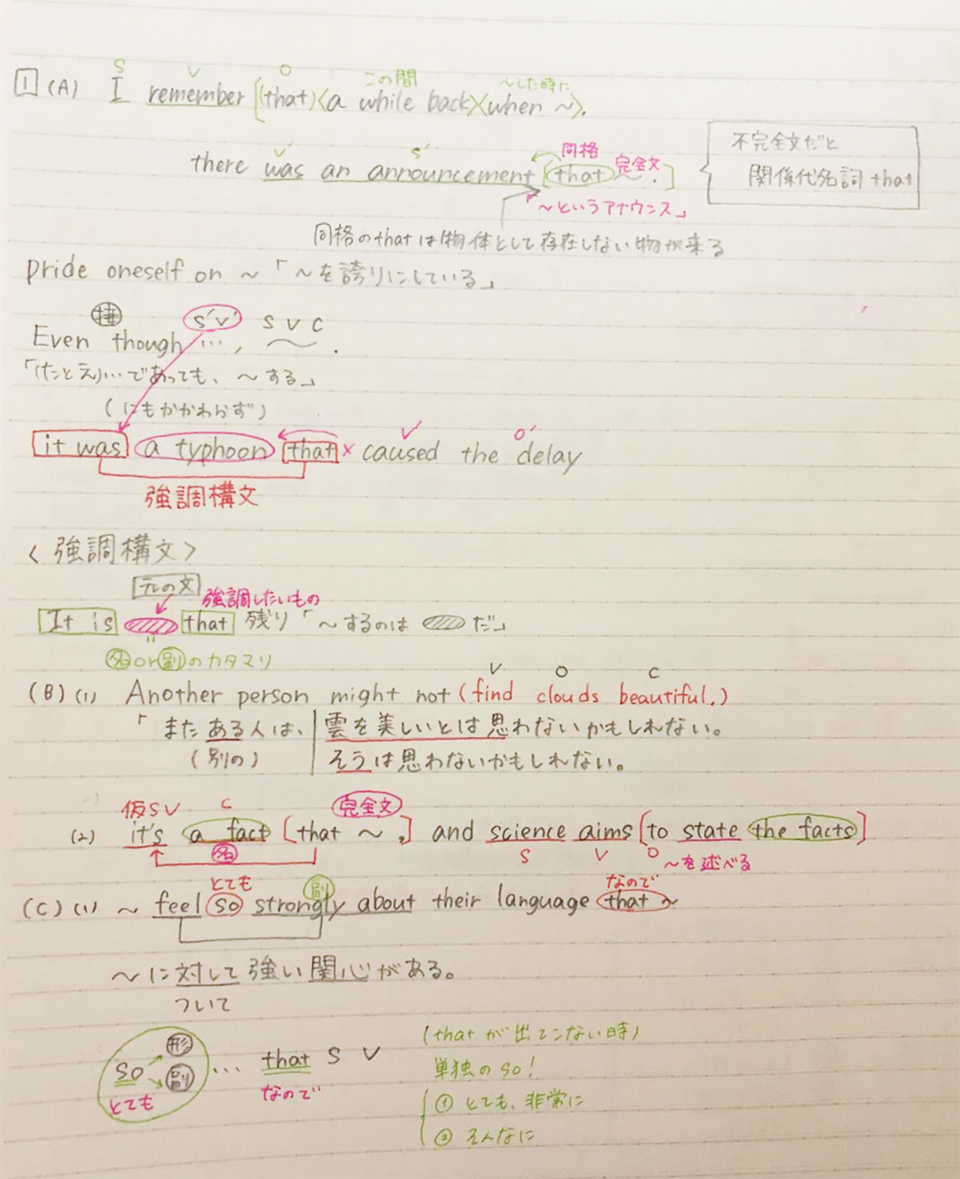 S V O この間 〜した時に
1 (A) I remember [(that)<a while back><when 〜>,
V' S' 同格 完全文
there was an announcement [that 〜.]
「〜というアナウンス」
不完全文だと
関係代名詞 that
同格のthatは物体として存在しない物が来る
pride oneself on 〜「〜を誇りにしている」
接 S'V' S V C
Even though …, 〜.
「(たとえ)…であっても、〜する」
(にもかかわらず)
V O'
it was a typhoon that × caused the delay
強調構文
<強調構文>
元の文 強調したいもの
It is that 残り「〜するのは だ」
名or副のカタマリ
V O C
(B) (1) Another person might not (find clouds beautiful.)
「また ある人は、雲を美しいとは思わないかもしれない。
(別の) そうは思わないかもしれない。
仮SV C 完全文
(2) it's a fact [that 〜,] and science aims [to state the facts]
名 S V O 〜を述べる
とても 副 なので
(C) (1) 〜 feel so strongly about their language that 〜
〜に対して強い関心がある。
ついて
形
so … that S V
副
とても なので
(thatが出てこない時)
単独のso!
① とても、非常に
② そんなに